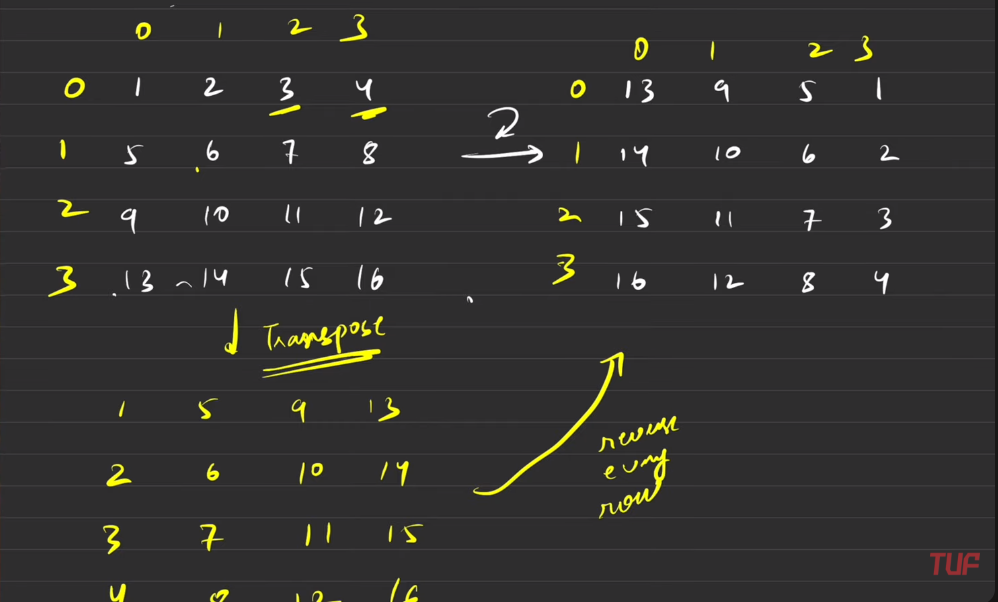 0 1 2 3
0 1 2 3 4
1 5 6 7 8
2 9 10 11 12
3 13 14 15 16
0 1 2 3
0 13 9 5 1
1 14 10 6 2
2 15 11 7 3
3 16 12 8 4
Transpose
1 5 9 13
2 6 10 14
3 7 11 15
4 8 12 16
reverse
every
row
TUF